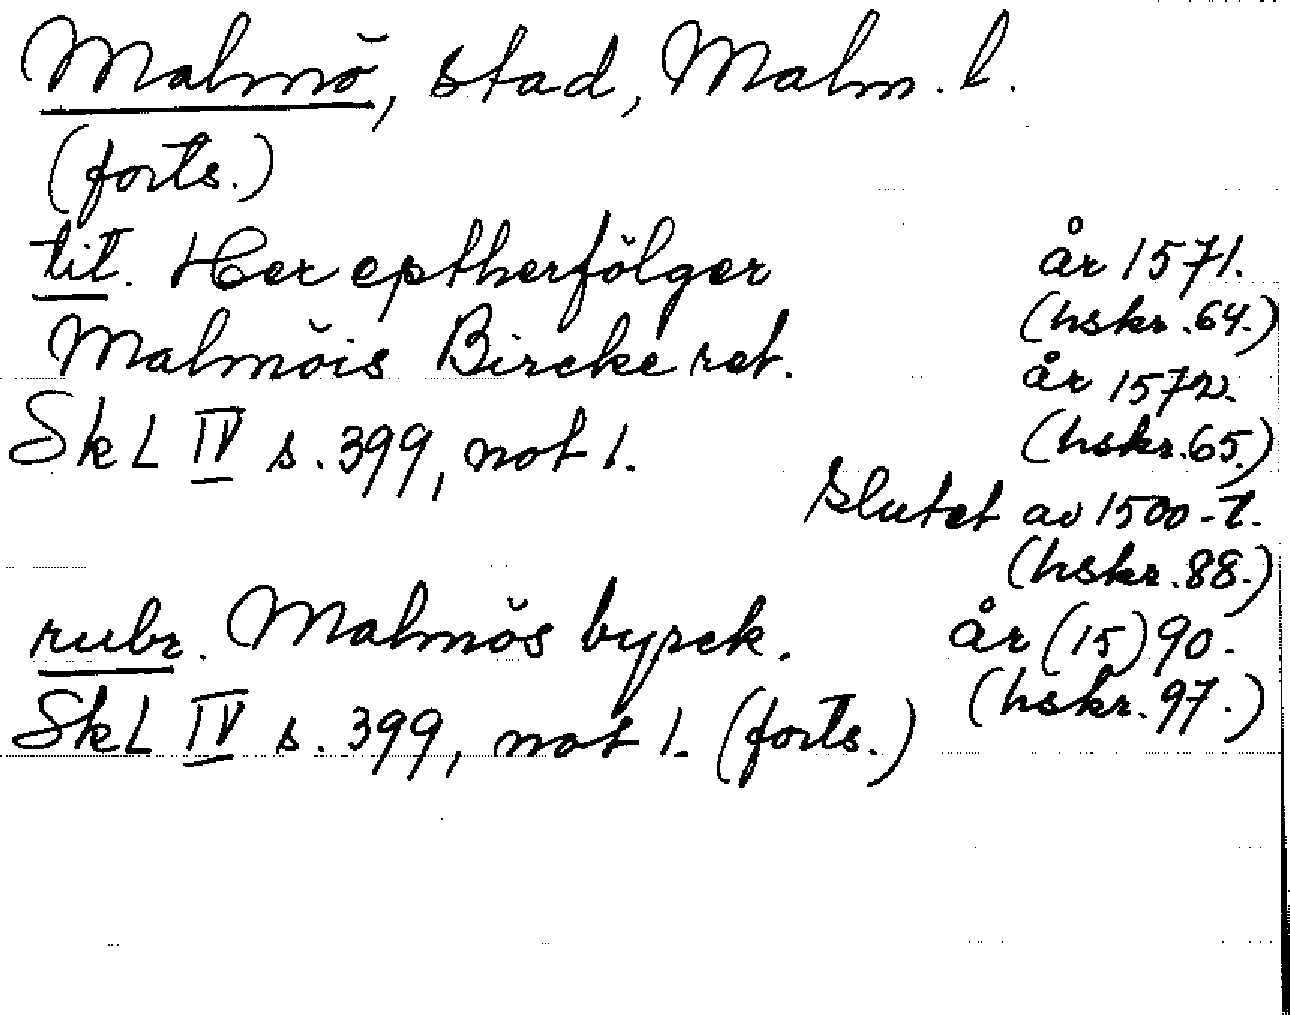 Malmö, stad, Malm. l.
(forts.)
tit. Her eptherfölger år 1571.
(hskr. 64.)
Malmöis Bircke ret. år 1572.
SkL IV s. 399, not 1. (hskr. 65.)
slutet av 1500-t.
(hskr. 88.)
rubr. Malmös byrck. år (15)90.
SkL IV s. 399, not 1. (forts.) (hskr. 97.)